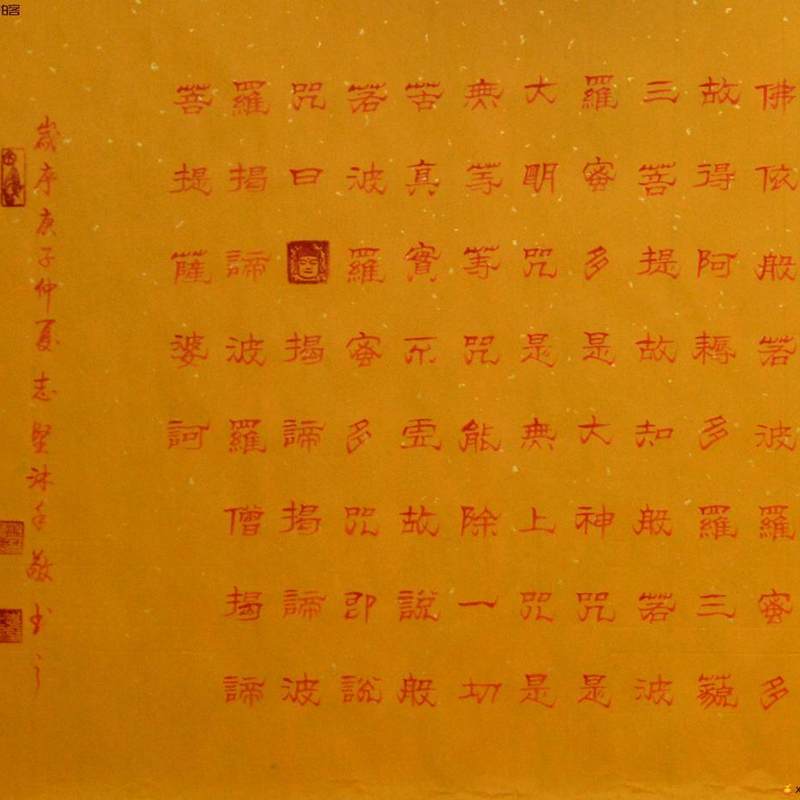 佛依般若波羅蜜多
故得阿耨多羅三藐
三菩提故知般若波
羅蜜多是大神咒是
大明咒是無上咒是
無等等咒能除一切
苦真實不虛故說般
若波羅蜜多咒即說
咒曰揭諦揭諦波
羅揭諦波羅僧揭諦
菩提薩婆訶
歲序庚子仲夏志堅沐手敬書之